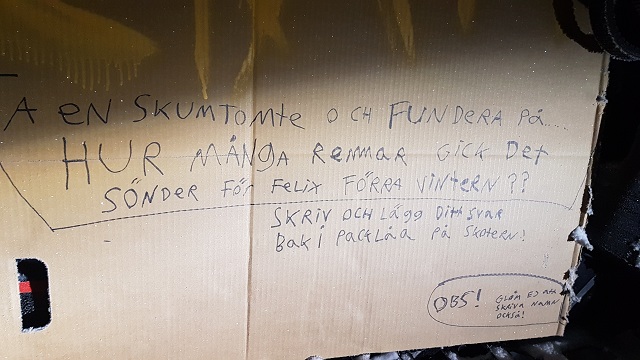 A EN SKUMTOMTE OCH FUNDERA PÅ.....
HUR MÅNGA REMMAR GICK DET
SÖNDER FÖR FELIX FÖRRA VINTERN??
SKRIV OCH LÄGG DITT SVAR
BAK I PACKLÅA PÅ SKOTERN!
OBS! GLÖM EJ ATT
SKRIVA NAMN
OCKSÅ!